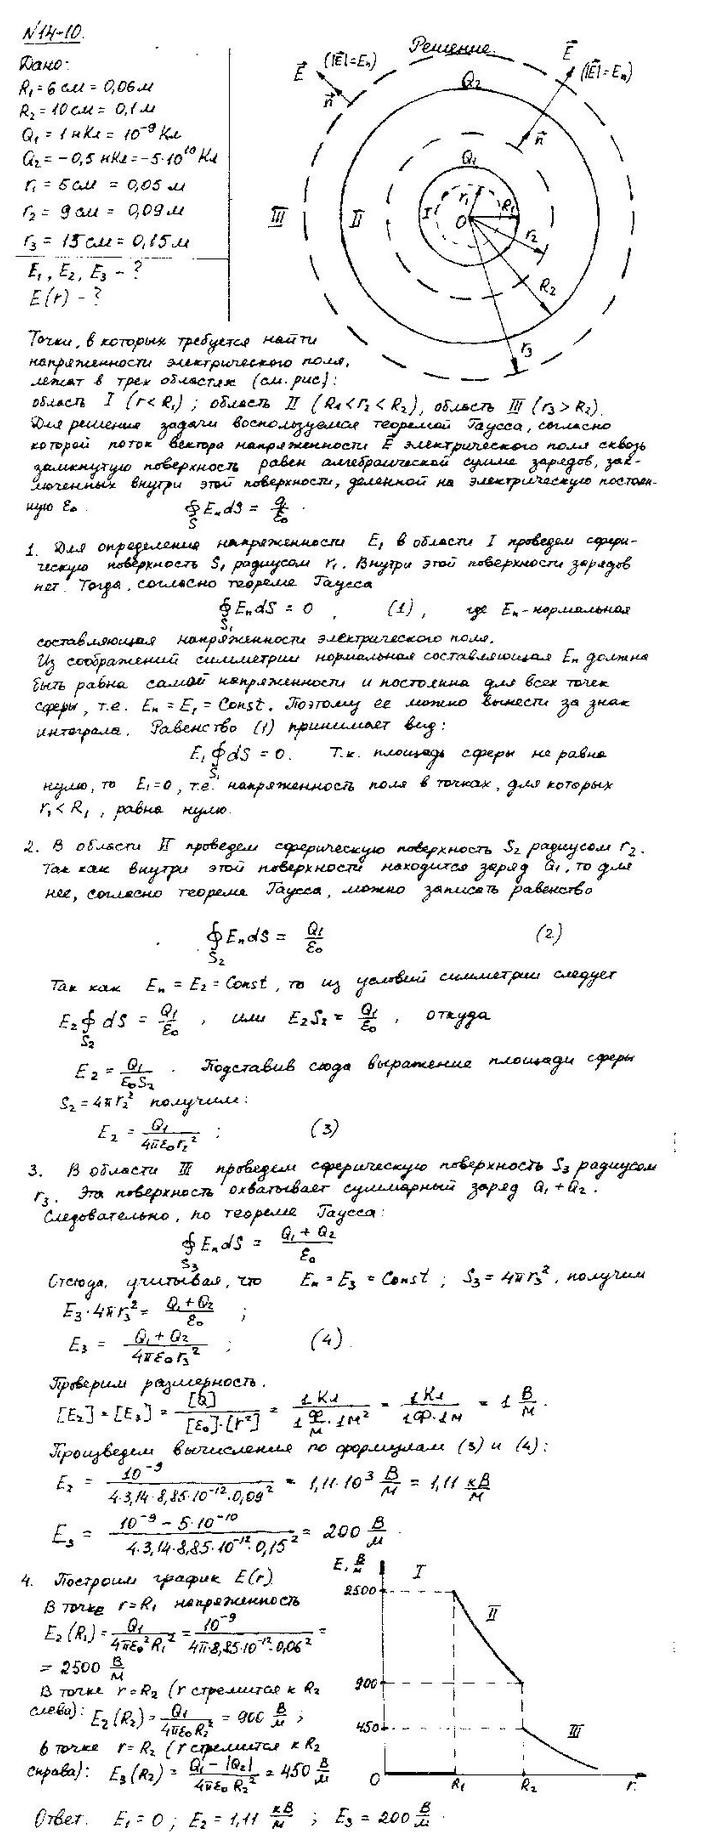 №14-10.
Дано:
R₁=6см=0,06м
R₂=10см=0,1м
Q₁=1нКл=10⁻⁹Кл
Q₂=-0,5нКл=-5·10¹⁰Кл
r₁=5см=0,05м
r₂=9см=0,09м
r₃=15см=0,15м
E₁, E₂, E₃ - ?
E(r) - ?
Решение.
E⃗ (|E⃗|=Eₙ)
n⃗
E⃗
(|E⃗|=Eₙ)
n⃗
Q₂
Q₁
III II I
r₁ R₁ O r₂ R₂ r₃
Точки, в которых требуется найти
напряженности электрического поля,
лежат в трех областях (см. рис):
область I (r<R₁); область II (R₁<r₂<R₂), область III (r₃>R₂).
Для решения задачи воспользуемся теоремой Гаусса, согласно
которой поток вектора напряженности E⃗ электрического поля сквозь
замкнутую поверхность равен алгебраической сумме зарядов, зак-
люченных внутри этой поверхности, деленной на электрическую постоян-
ную ε₀. ∮_S EₙdS = q/ε₀.
1. Для определения напряженности E₁ в области I проведем сфери-
ческую поверхность S₁ радиусом r₁. Внутри этой поверхности зарядов
нет. Тогда, согласно теореме Гаусса
∮_S₁ EₙdS = 0, (1), где Eₙ-нормальная
составляющая напряженности электрического поля.
Из соображений симметрии нормальная составляющая Eₙ должна
быть равна самой напряженности и постоянна для всех точек
сферы, т.е. Eₙ = E₁ = Const. Поэтому ее можно вынести за знак
интеграла. Равенство (1) принимает вид:
E₁∮_S₁ dS = 0. Т.к. площадь сферы не равна
нулю, то E₁=0, т.е. напряженность поля в точках, для которых
r₁<R₁, равна нулю.
2. В области II проведем сферическую поверхность S₂ радиусом r₂.
Так как внутри этой поверхности находится заряд Q₁, то для
нее, согласно теореме Гаусса, можно записать равенство
∮_S₂ EₙdS = Q₁/ε₀ (2)
Так как Eₙ = E₂ = Const, то из условий симметрии следует
E₂∮_S₂ dS = Q₁/ε₀, или E₂S₂ = Q₁/ε₀, откуда
E₂ = Q₁/(ε₀S₂). Подставив сюда выражение площади сферы
S₂=4πr₂² получим:
E₂ = Q₁/(4πε₀r₂²); (3)
3. В области III проведем сферическую поверхность S₃ радиусом
r₃. Эта поверхность охватывает суммарный заряд Q₁+Q₂.
Следовательно, по теореме Гаусса:
∮_S₃ EₙdS = (Q₁+Q₂)/ε₀
Отсюда, учитывая, что Eₙ = E₃ = Const; S₃=4πr₃², получим
E₃·4πr₃² = (Q₁+Q₂)/ε₀;
E₃ = (Q₁+Q₂)/(4πε₀r₃²); (4).
Проверим размерность.
[E₂]=[E₃]=[Q]/([ε₀]·[r²]) = 1Кл/(1Ф/м·1м²) = 1Кл/(1Ф·1м) = 1 В/м.
Произведем вычисления по формулам (3) и (4):
E₂ = 10⁻⁹/(4·3,14·8,85·10⁻¹²·0,09²) = 1,11·10³ В/м = 1,11 кВ/м
E₃ = (10⁻⁹-5·10⁻¹⁰)/(4·3,14·8,85·10⁻¹²·0,15²) = 200 В/м.
4. Построим график E(r)
В точке r=R₁ напряженность
E₂(R₁)=Q₁/(4πε₀²R₁²)=10⁻⁹/(4π·8,85·10⁻¹²·0,06²)=
= 2500 В/м
В точке r=R₂ (r стремится к R₂
слева): E₂(R₂)=Q₁/(4πε₀R₂²)=900 В/м;
в точке r=R₂ (r стремится к R₂
справа): E₃(R₂)=(Q₁-|Q₂|)/(4πε₀R₂²)=450 В/м
E, В/м
I
2500
II
900
450
III
0 R₁ R₂ r.
Ответ. E₁=0; E₂=1,11 кВ/м; E₃=200 В/м.